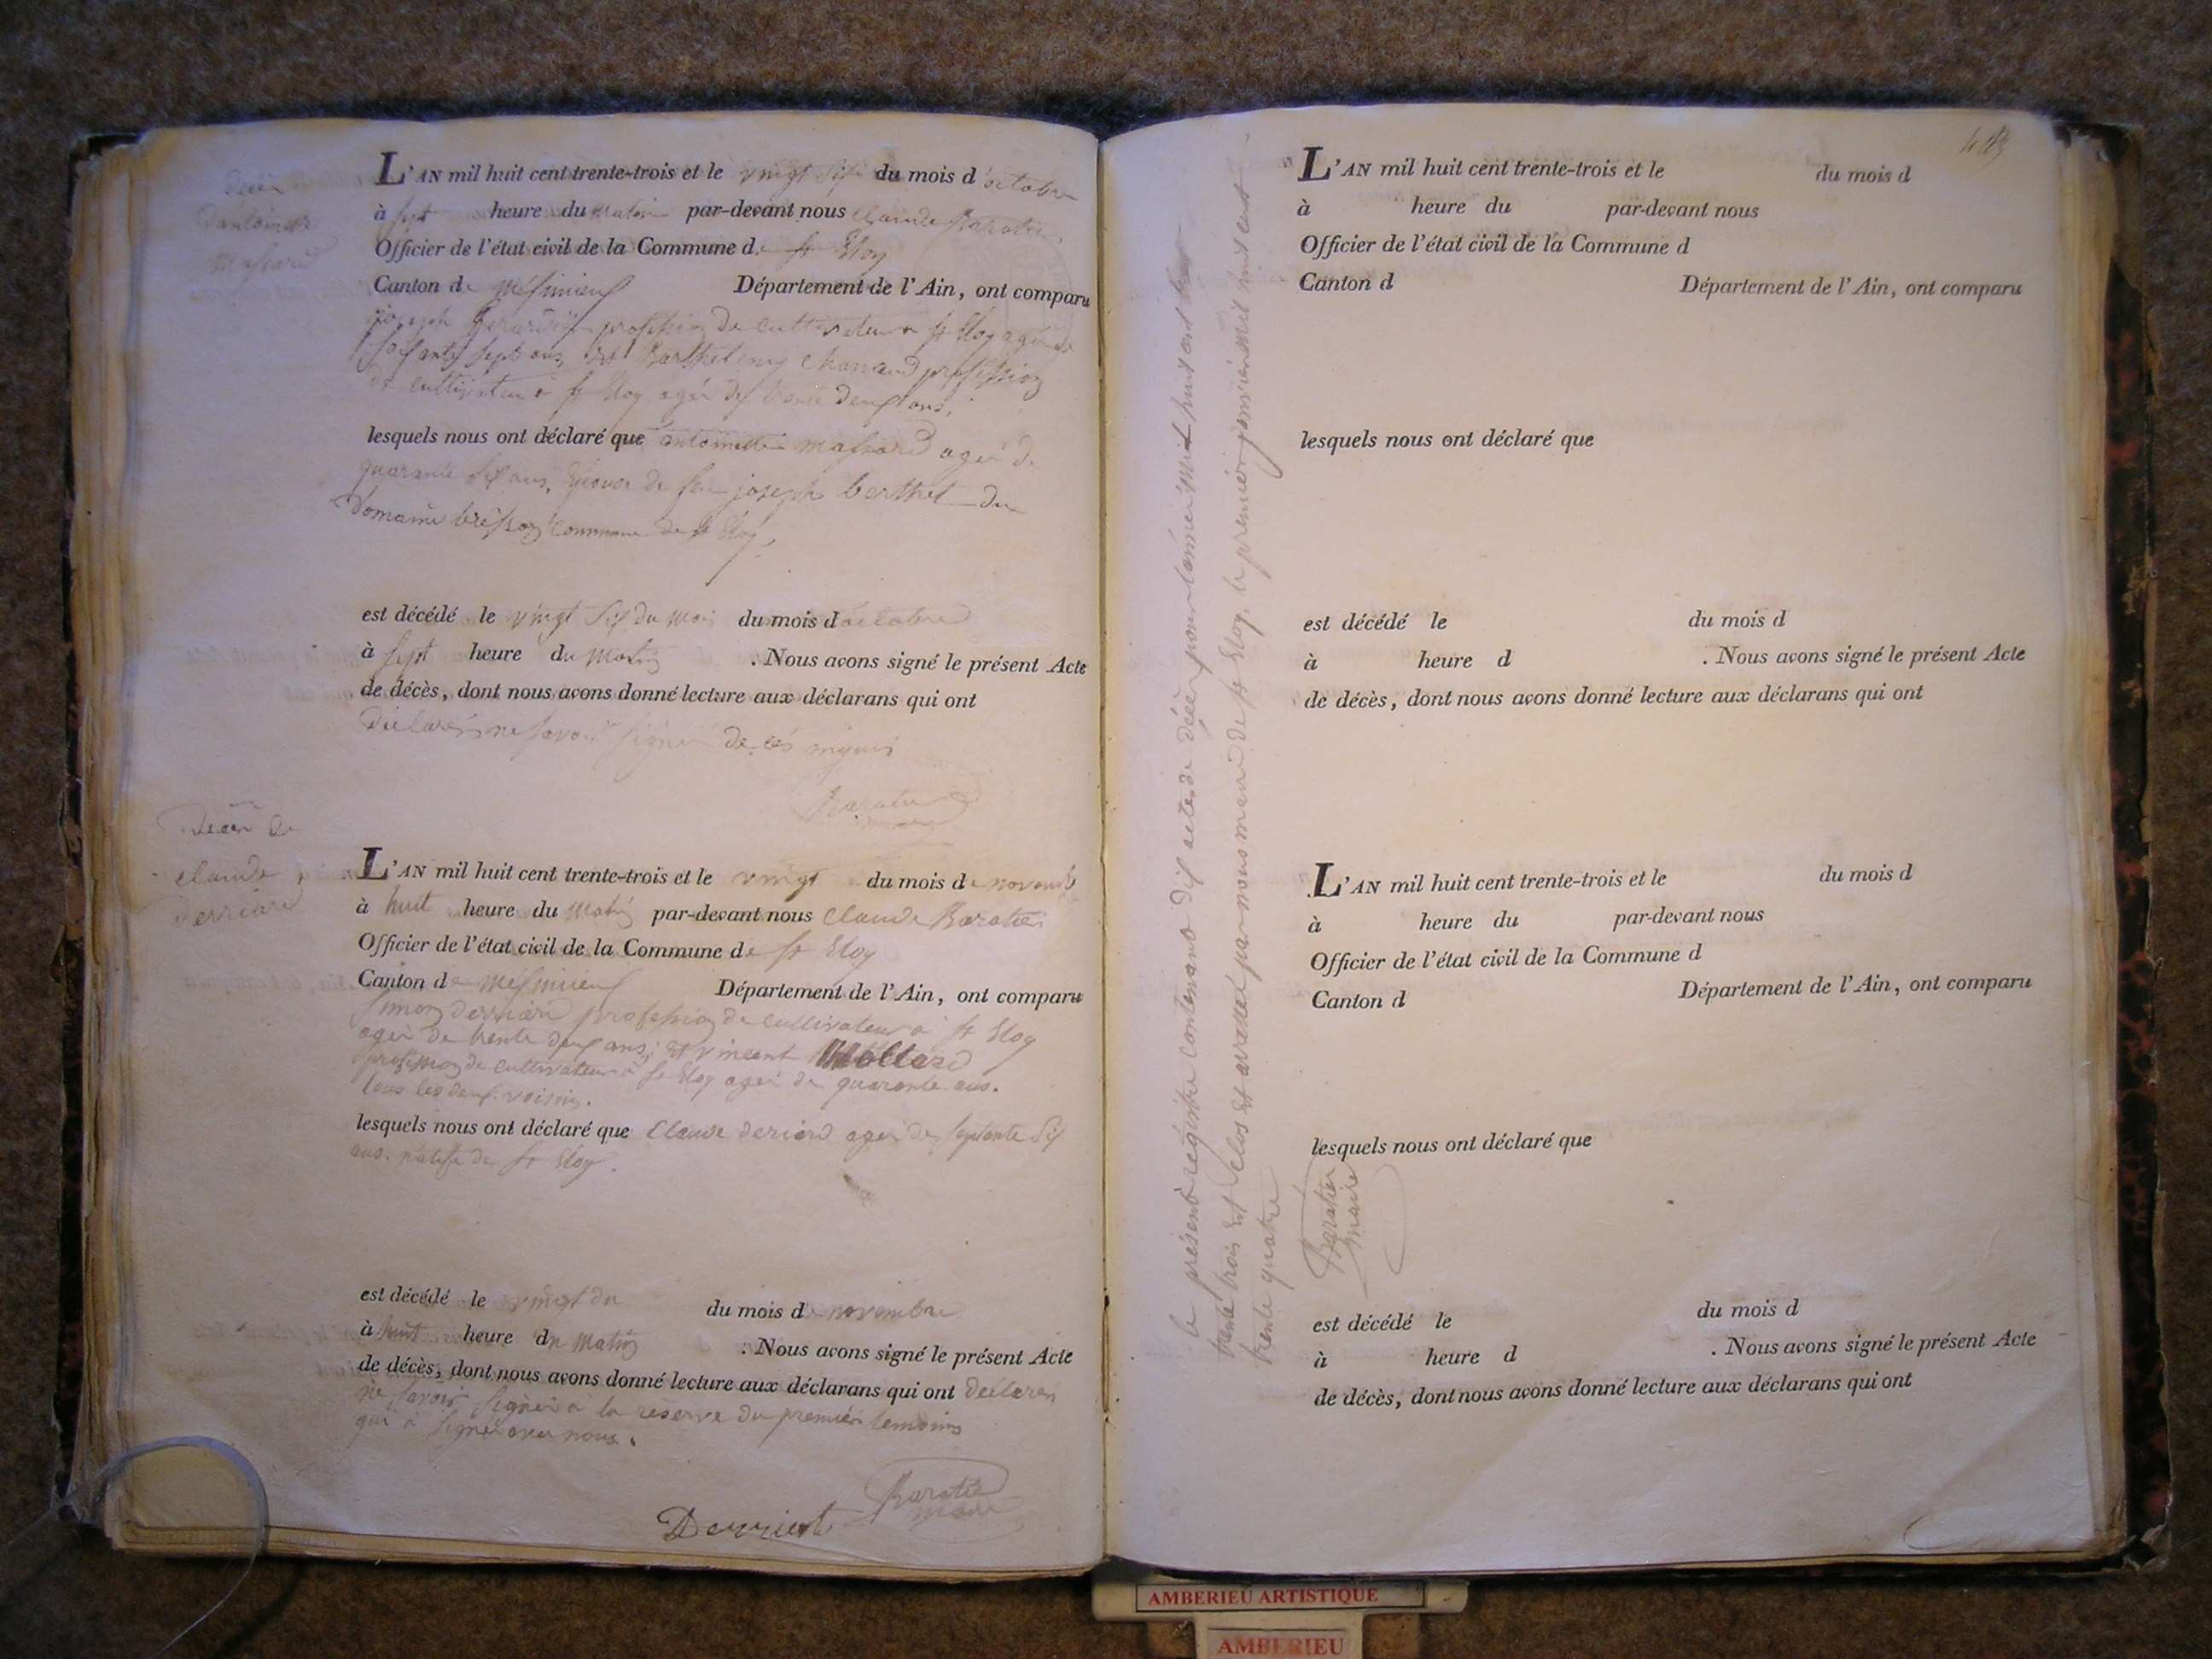 décès
d'antoinette
massard
L'AN mil huit cent trente-trois et le vingt six du mois d'octobre
à sept heure du matin par-devant nous Claude Baratier
Officier de l'état civil de la Commune de st Eloy
Canton de mésimieux Département de l'Ain, ont comparu
joseph profession de cultivateur a st Eloy agé de
soixante sept ans, et Barthelemy profession
de cultivateur a st Eloy agé de trente deux ans,
lesquels nous ont déclaré que antoinette massard agé de
quarante six ans, de feu joseph berthet du
Domaine commune de st Eloy,
est décédé le vingt six du mois du mois d octobre
à sept heure du matin . Nous avons signé le présent Acte
de décès, dont nous avons donné lecture aux déclarans qui ont
ne savoir signer de
Baratier
maire
Décès de
claude
derriard
L'AN mil huit cent trente-trois et le vingt du mois de novembre
à huit heure du matin par-devant nous Claude Baratier
Officier de l'état civil de la Commune de st Eloy
Canton de mésimieux Département de l'Ain, ont comparu
simon derriard profession de cultivateur a st Eloy
agé de trente deux ans; et vincent Mollard
profession de cultivateur a st Eloy agé de quarante ans.
tous les deux voisins.
lesquels nous ont déclaré que Claude deriard agé de septante six
ans. natif de st Eloy.
est décédé le vingt du du mois de novembre
à huit heure du matin . Nous avons signé le présent Acte
de décès, dont nous avons donné lecture aux déclarans qui ont déclarer
ne savoir signer a la reserve du premier temoins
qui a signé avec nous.
Baratier
maire
Derriert
le présent registre contenant dix actes de décé pour l'année mil huit cent
trente trois est clos et arretté par nous maire de st Eloy, le premier janvier mil huit cent
trente quatre
Baratier
maire
L'AN mil huit cent trente-trois et le du mois d
à heure du par-devant nous
Officier de l'état civil de la Commune d
Canton d Département de l'Ain, ont comparu
lesquels nous ont déclaré que
est décédé le du mois d
à heure d . Nous avons signé le présent Acte
de décès, dont nous avons donné lecture aux déclarans qui ont
L'AN mil huit cent trente-trois et le du mois d
à heure du par-devant nous
Officier de l'état civil de la Commune d
Canton d Département de l'Ain, ont comparu
lesquels nous ont déclaré que
est décédé le du mois d
à heure d . Nous avons signé le présent Acte
de décès, dont nous avons donné lecture aux déclarans qui ont
AMBERIEU ARTISTIQUE
AMBERIEU